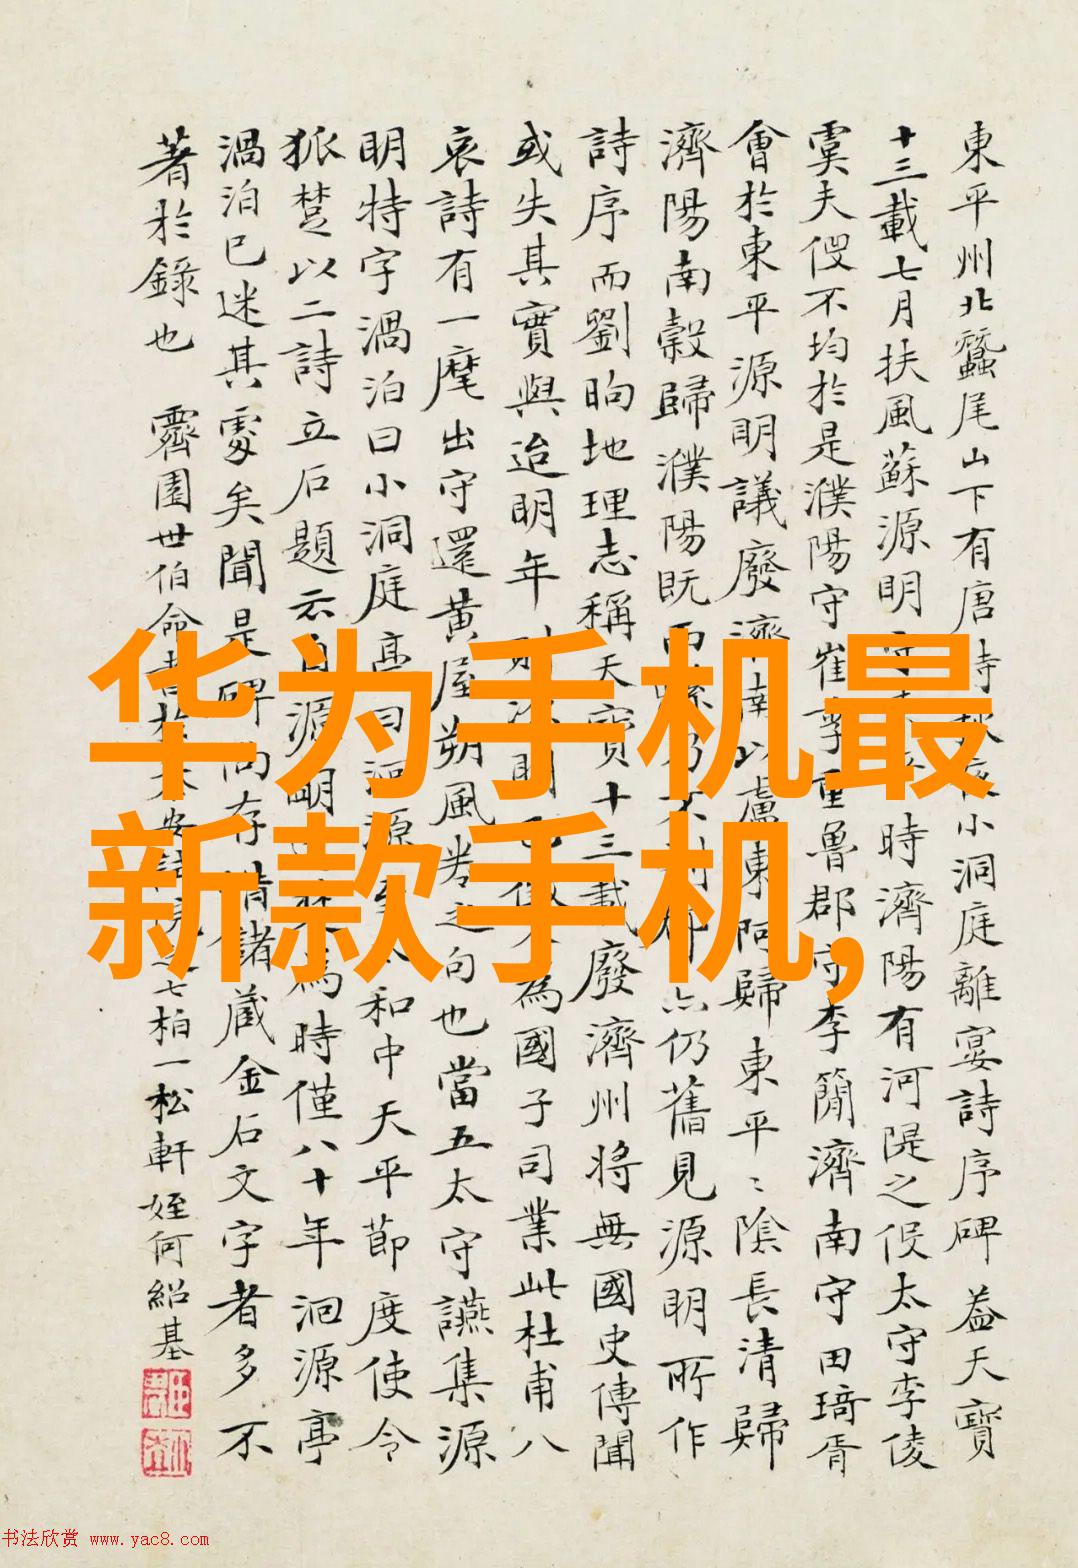 東平州北蠶尾山下有唐詩小洞庭離宴詩序碑蓋天寶
十三載七月扶風蘇源明時濟陽有河隄之役太守李倰
虞夫役不均於是濮陽守崔季重魯郡守李簡濟南守田琦胥
會於東平源明議廢濟南以盧東阿歸東平二陰長清歸
濟陽南穀歸濮陽既而仍舊見源明所作
詩序而劉昫地理志稱天寶十三載廢濟州將無國史傳聞
或失其實與迨明年則源明已為國子司業此杜甫八
哀詩有一麾出守還黃屋朔風卷之句也當五太守讌集源
明特字渦泊曰小洞庭亭曰洄源至太和中天平節度使令
狐楚以二詩立石題云自源明為時僅八十年洄源亭
渦泊已迷其處矣聞是碑尚存情諸藏金石文字者多不
著於錄也 霽園世伯命書七柏一松軒姪何紹基
华为手机最
新款手机,
书法欣赏 www.yac8.com